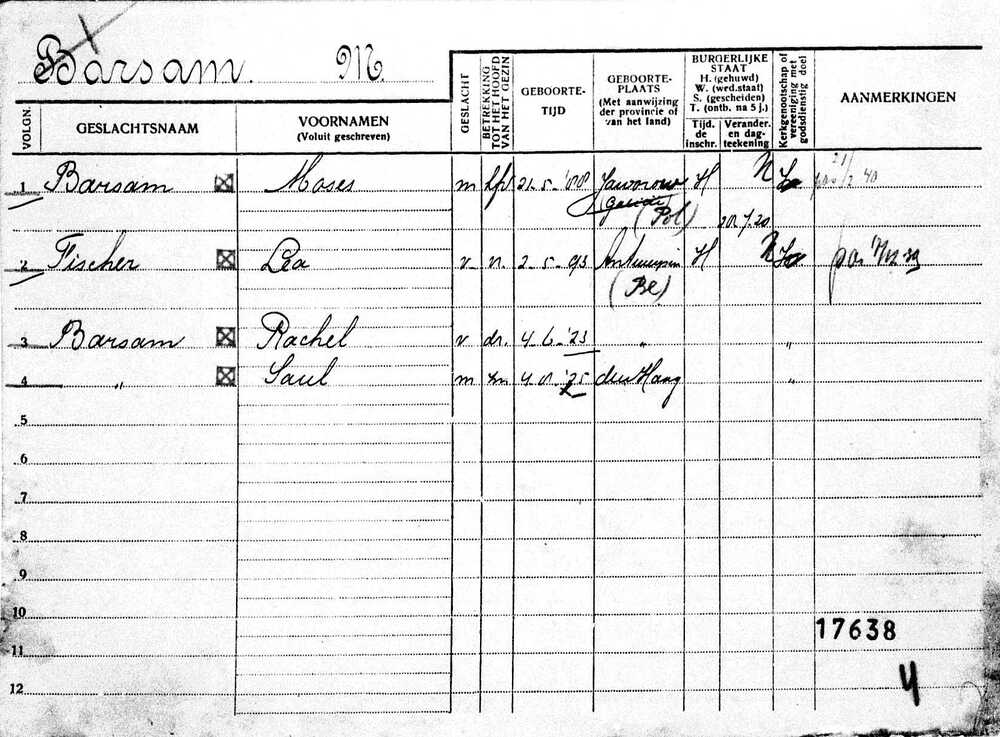 Barsam. M.
VOLGN. GESLACHTSNAAM VOORNAMEN (Voluit geschreven) GESLACHT BETREKKING TOT HET HOOFD VAN HET GEZIN GEBOORTE-TIJD GEBOORTE-PLAATS (Met aanwijzing der provincie of van het land) BURGERLIJKE STAAT H. (gehuwd) W. (wed.staat) S. (gescheiden) T. (ontb. na 5 j.) Tijd. de inschr. Verander. en dag-teekening Kerkgenootschap of vereeniging met godsdienstig doel AANMERKINGEN
1 Barsam Moses m 21-5- Jaworow H N
(Pol) 20.7.20
2 Fischer Lea v. v. 2-5-93 Antwerpen H N
(Be)
3 Barsam Rachel v dr. 4-6-'23 "  "
4 " Saul m zn 4 '25 den Haag "
5
6
7
8
9
10
17638
11
4
12